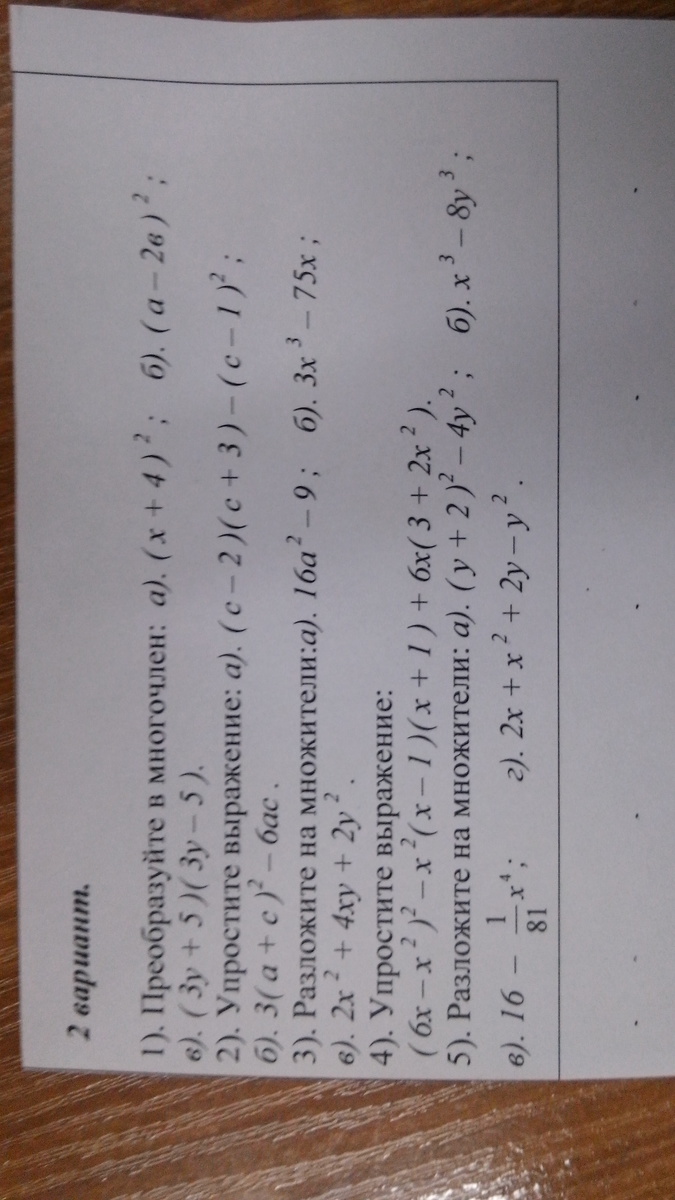 2 вариант.
1). Преобразуйте в многочлен: а). ( x + 4 )² ; б). ( а – 2в )² ;
в). ( 3y + 5 )( 3y – 5 ).
2). Упростите выражение: а). ( c – 2 )( c + 3 ) – ( c – 1 )² ;
б). 3( a + c )² – 6ac .
3). Разложите на множители:а). 16a² – 9 ; б). 3x³ – 75x ;
в). 2x² + 4xy + 2y² .
4). Упростите выражение:
( 6x – x² )² – x²( x – 1 )( x + 1 ) + 6x( 3 + 2x² ).
5). Разложите на множители: а). ( y + 2 )² – 4y² ; б). x³ – 8y³ ;
в). 16 – 1/81 x⁴ ; г). 2x + x² + 2y – y² .